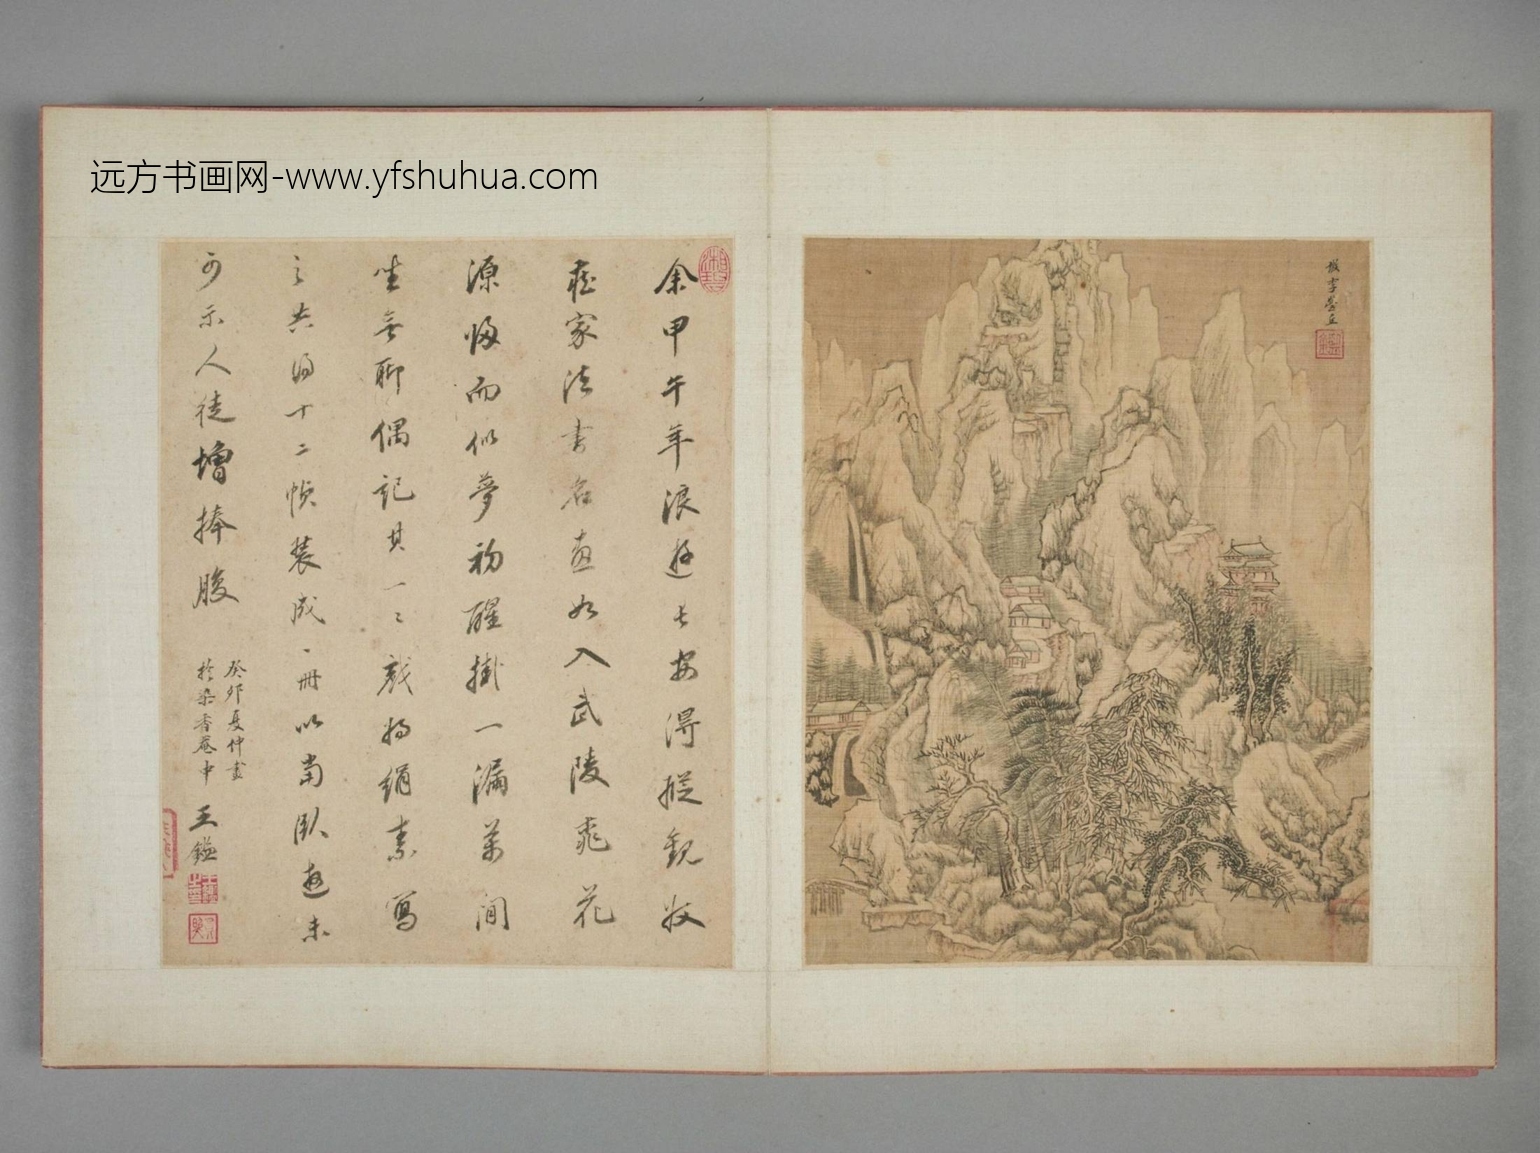 远方书画网-www.yfshuhua.com
余甲午年浪遊長安得縱觀收
藏家法書名畫如入武陵桃花
源歸而似夢初醒掛一漏萬間
坐無聊偶記其一二戲將絹素寫
之共得十二幀裝成一冊以當臥遊未
可示人徒增捧腹
癸卯夏仲畫
於染香菴中
王鑑
擬李營丘